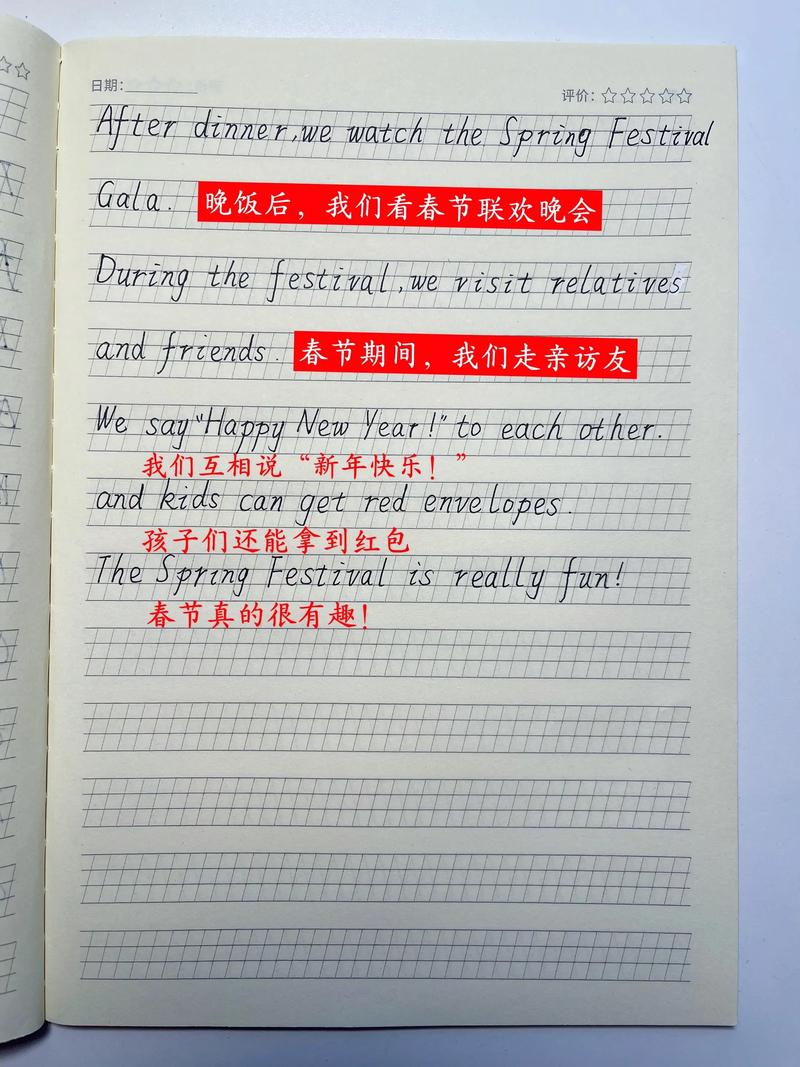 日期：
评价：
After dinner,we watch the Spring Festival
Gala. 晚饭后，我们看春节联欢晚会
During the festival,we visit relatives
and friends. 春节期间，我们走亲访友
We say"Happy New Year!"to each other.
我们互相说“新年快乐！”
and kids can get red envelopes.
孩子们还能拿到红包
The Spring Festival is really fun!
春节真的很有趣！